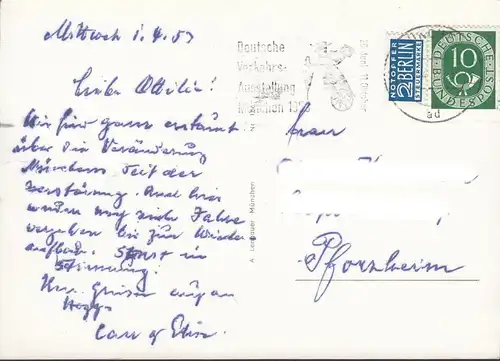 Mittwoch 1.4.53
Liebe Ottilie!
Wir sind ganz erstaunt
über die Veränderung
Münchens seit der
Zerstörung. Auch hier
werden noch viele Jahre
vergehen bis zur Wieder
aufbau. Sonst in
Stimmung.
Grüsse
Carl
Deutsche
Verkehrs-
Ausstellung
München 195
20. Juni
NOTOPFER
2 BERLIN
STEUERMARKE
DEUTSCHE
BUNDESPOST
10
ad
Frau
Pforzheim
München